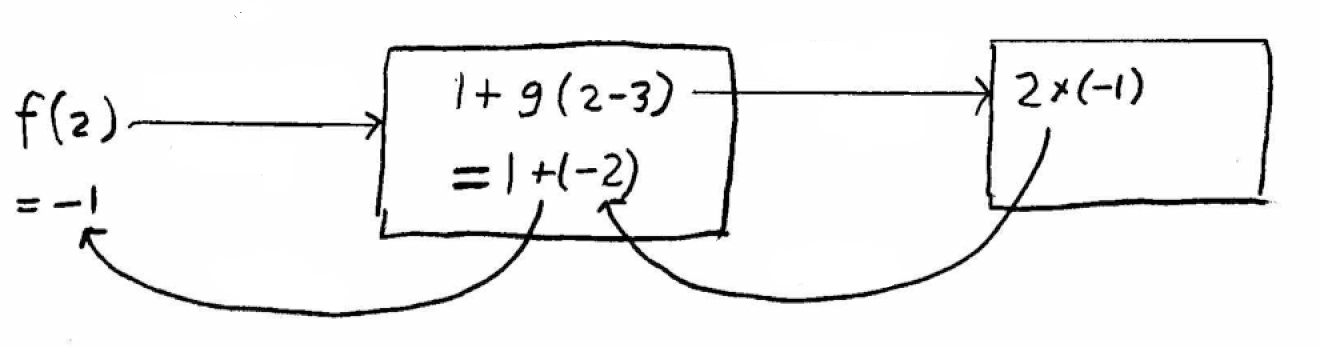 f(2)
= -1
1 + g(2-3)
= 1 + (-2)
2 × (-1)